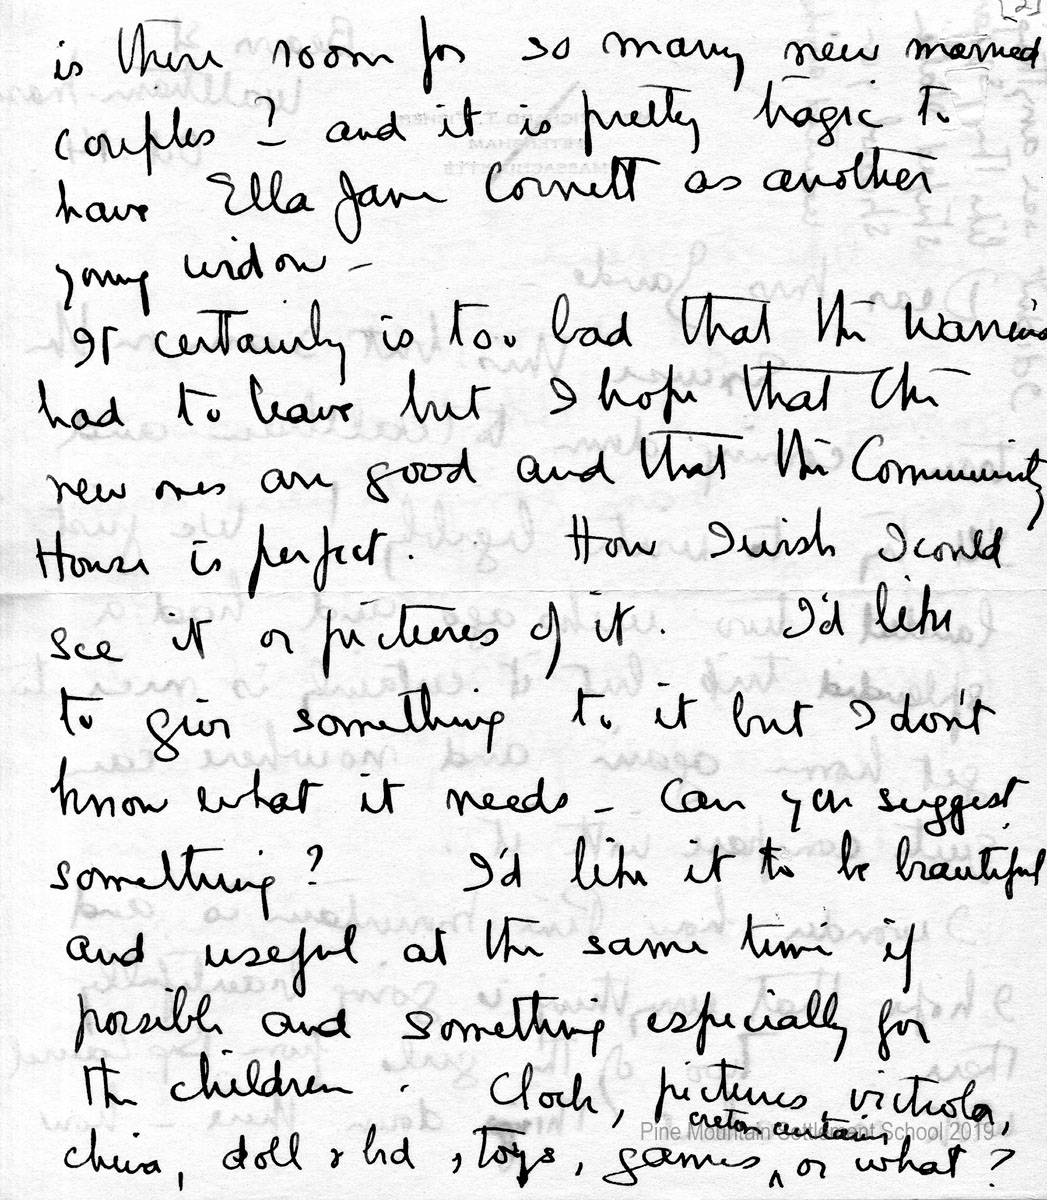 [2]
is there room for so many new married
couples? and it is pretty tragic to
have Ella Jane Cornett as another
young widow –
It certainly is too bad that the Warrens
had to leave but I hope that the
new ones are good and that the Community
House is perfect. How I wish I could
see it or pictures of it. I'd like
to give something to it but I don't
know what it needs – Can you suggest
something? I'd like it to be beautiful
and useful at the same time if
possible and something especially for
the children. Clock, pictures, victrola,
creton curtains
Pine Mountain Settlement School 2019
china, doll & bed, toys, games ^ or what?